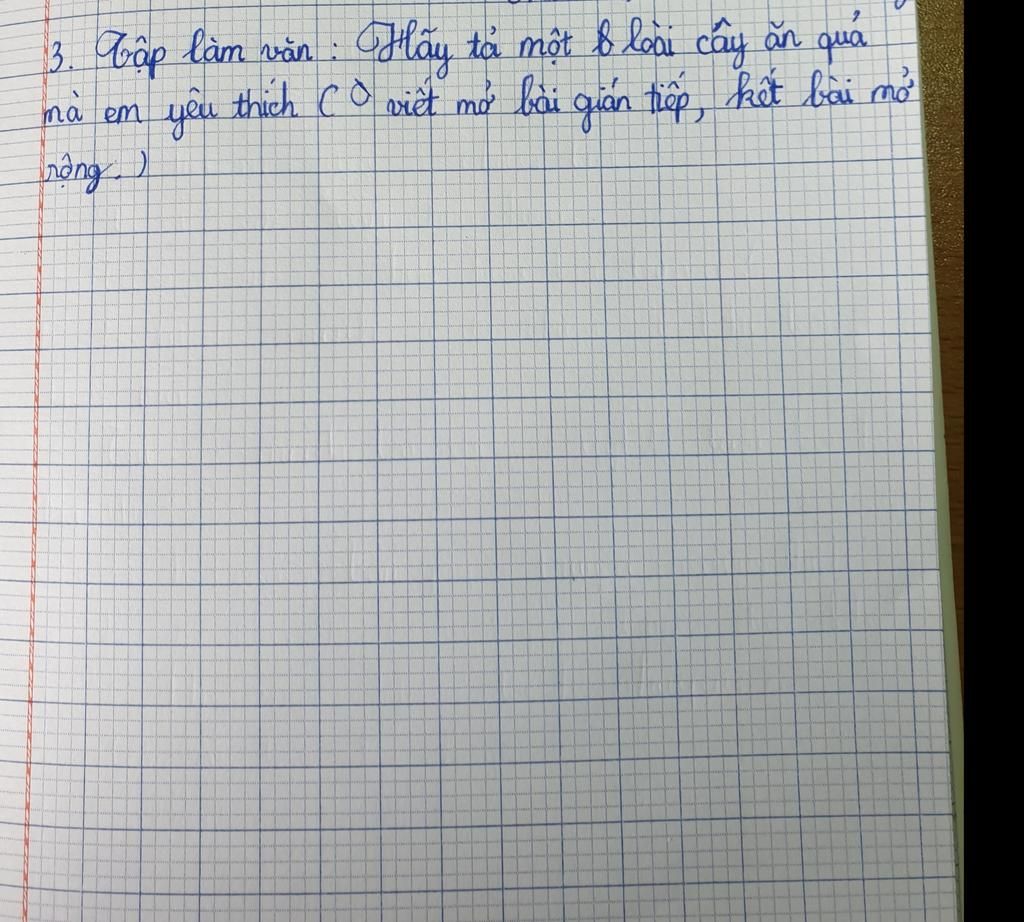 3. Tập làm văn : Hãy tả một loài cây ăn quả
mà em yêu thích ( viết mở bài gián tiếp, kết bài mở
rộng. )